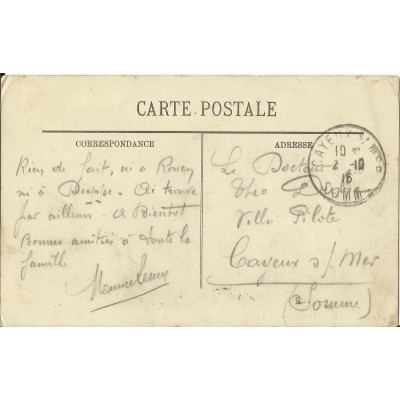 CARTE POSTALE
CORRESPONDANCE
Rien de fait, ni a Rouen
ni à Dieppe. Ai trouvé
par ailleurs. A Bientot
Bonnes amitiés à toute la
famille
ADRESSE
Le Docteur
Théo
Villa Pilote
Cayeux s/ Mer
(Somme)
CAYEUX S/MER
10
2 -10
16
SOMME